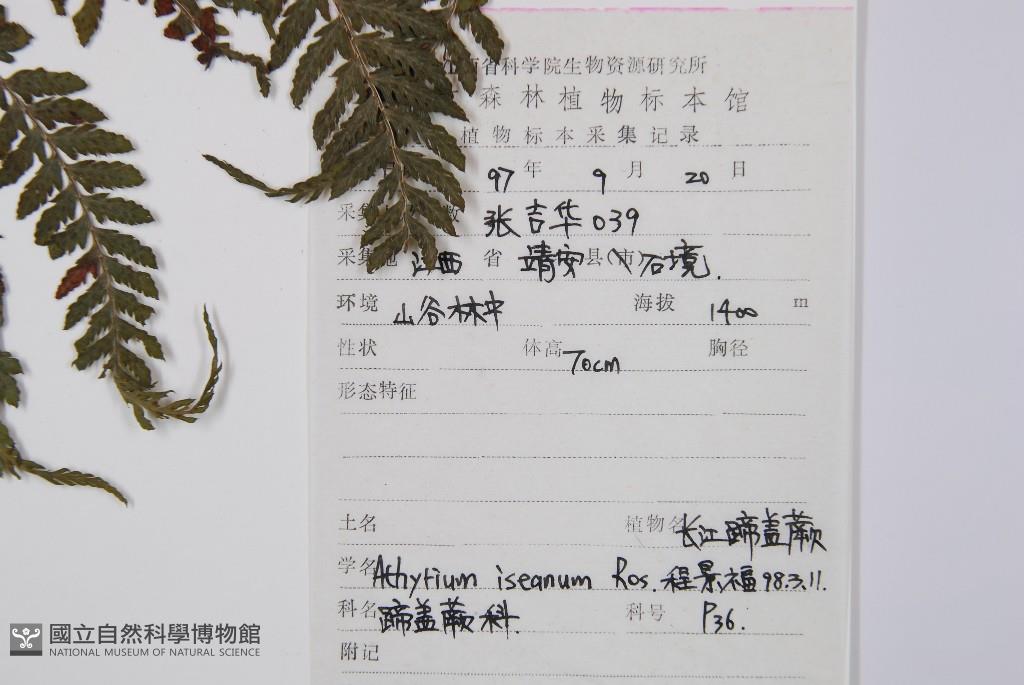 省科学院生物资源研究所
森林植物标本馆
植物标本采集记录
97年 9月 20日
采集 数 张吉华 039
采集地 江西 省 靖安 县(市) 石境.
环境 山谷林中 海拔 1400 m
性状 体高 70cm 胸径
形态特征
土名 植物名 长江蹄盖蕨
学名 Athyrium iseanum Ros. 程景福 98.3.11.
科名 蹄盖蕨科. 科号 P36.
附记
國立自然科學博物館
NATIONAL MUSEUM OF NATURAL SCIENCE